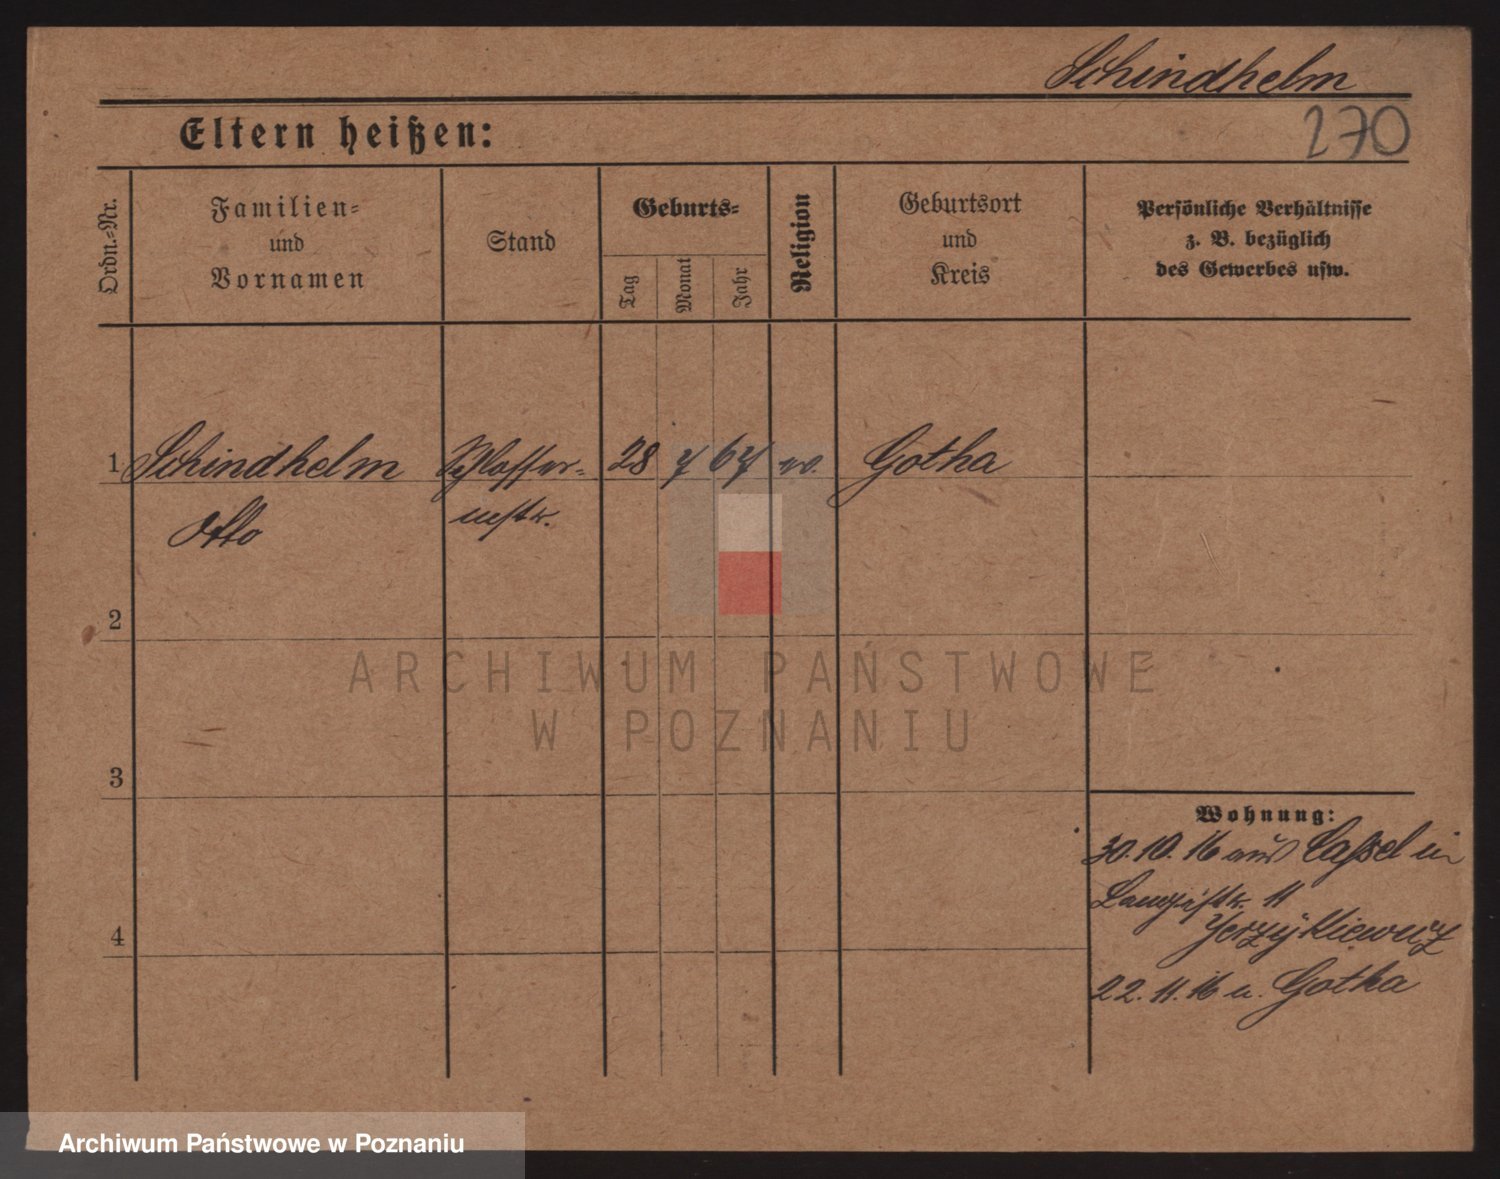 Schindhelm
270
Eltern heißen:
Ordn.-Nr.
Familien-
und
Vornamen
Stand
Geburts-
Tag
Monat
Jahr
Religion
Geburtsort
und
Kreis
Persönliche Verhältnisse
z. B. bezüglich
des Gewerbes usw.
1 Schindhelm Schlosser- 28 7 67 ev. Gotha
Otto mstr.
2
3
4
Wohnung:
30.10.16 aus Cassel in
11
22.11.16 n. Gotha
ARCHIWUM PAŃSTWOWE
W POZNANIU
Archiwum Państwowe w Poznaniu